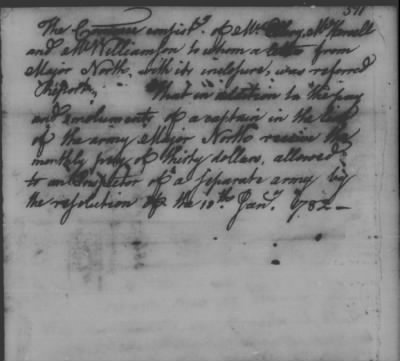 511
The Committee consistg. of Mr Ellery, Mr Howell
and Mr Williamson to whom a letter from
Major North, with its inclosure, was referred
Report, That in addition to the pay
and emoluments of a captain in the line
of the army Major North receive the
monthly pay of thirty dollars, allowed
to an Inspector of a separate army by
the resolution of the 10th. Jany. 1782 —